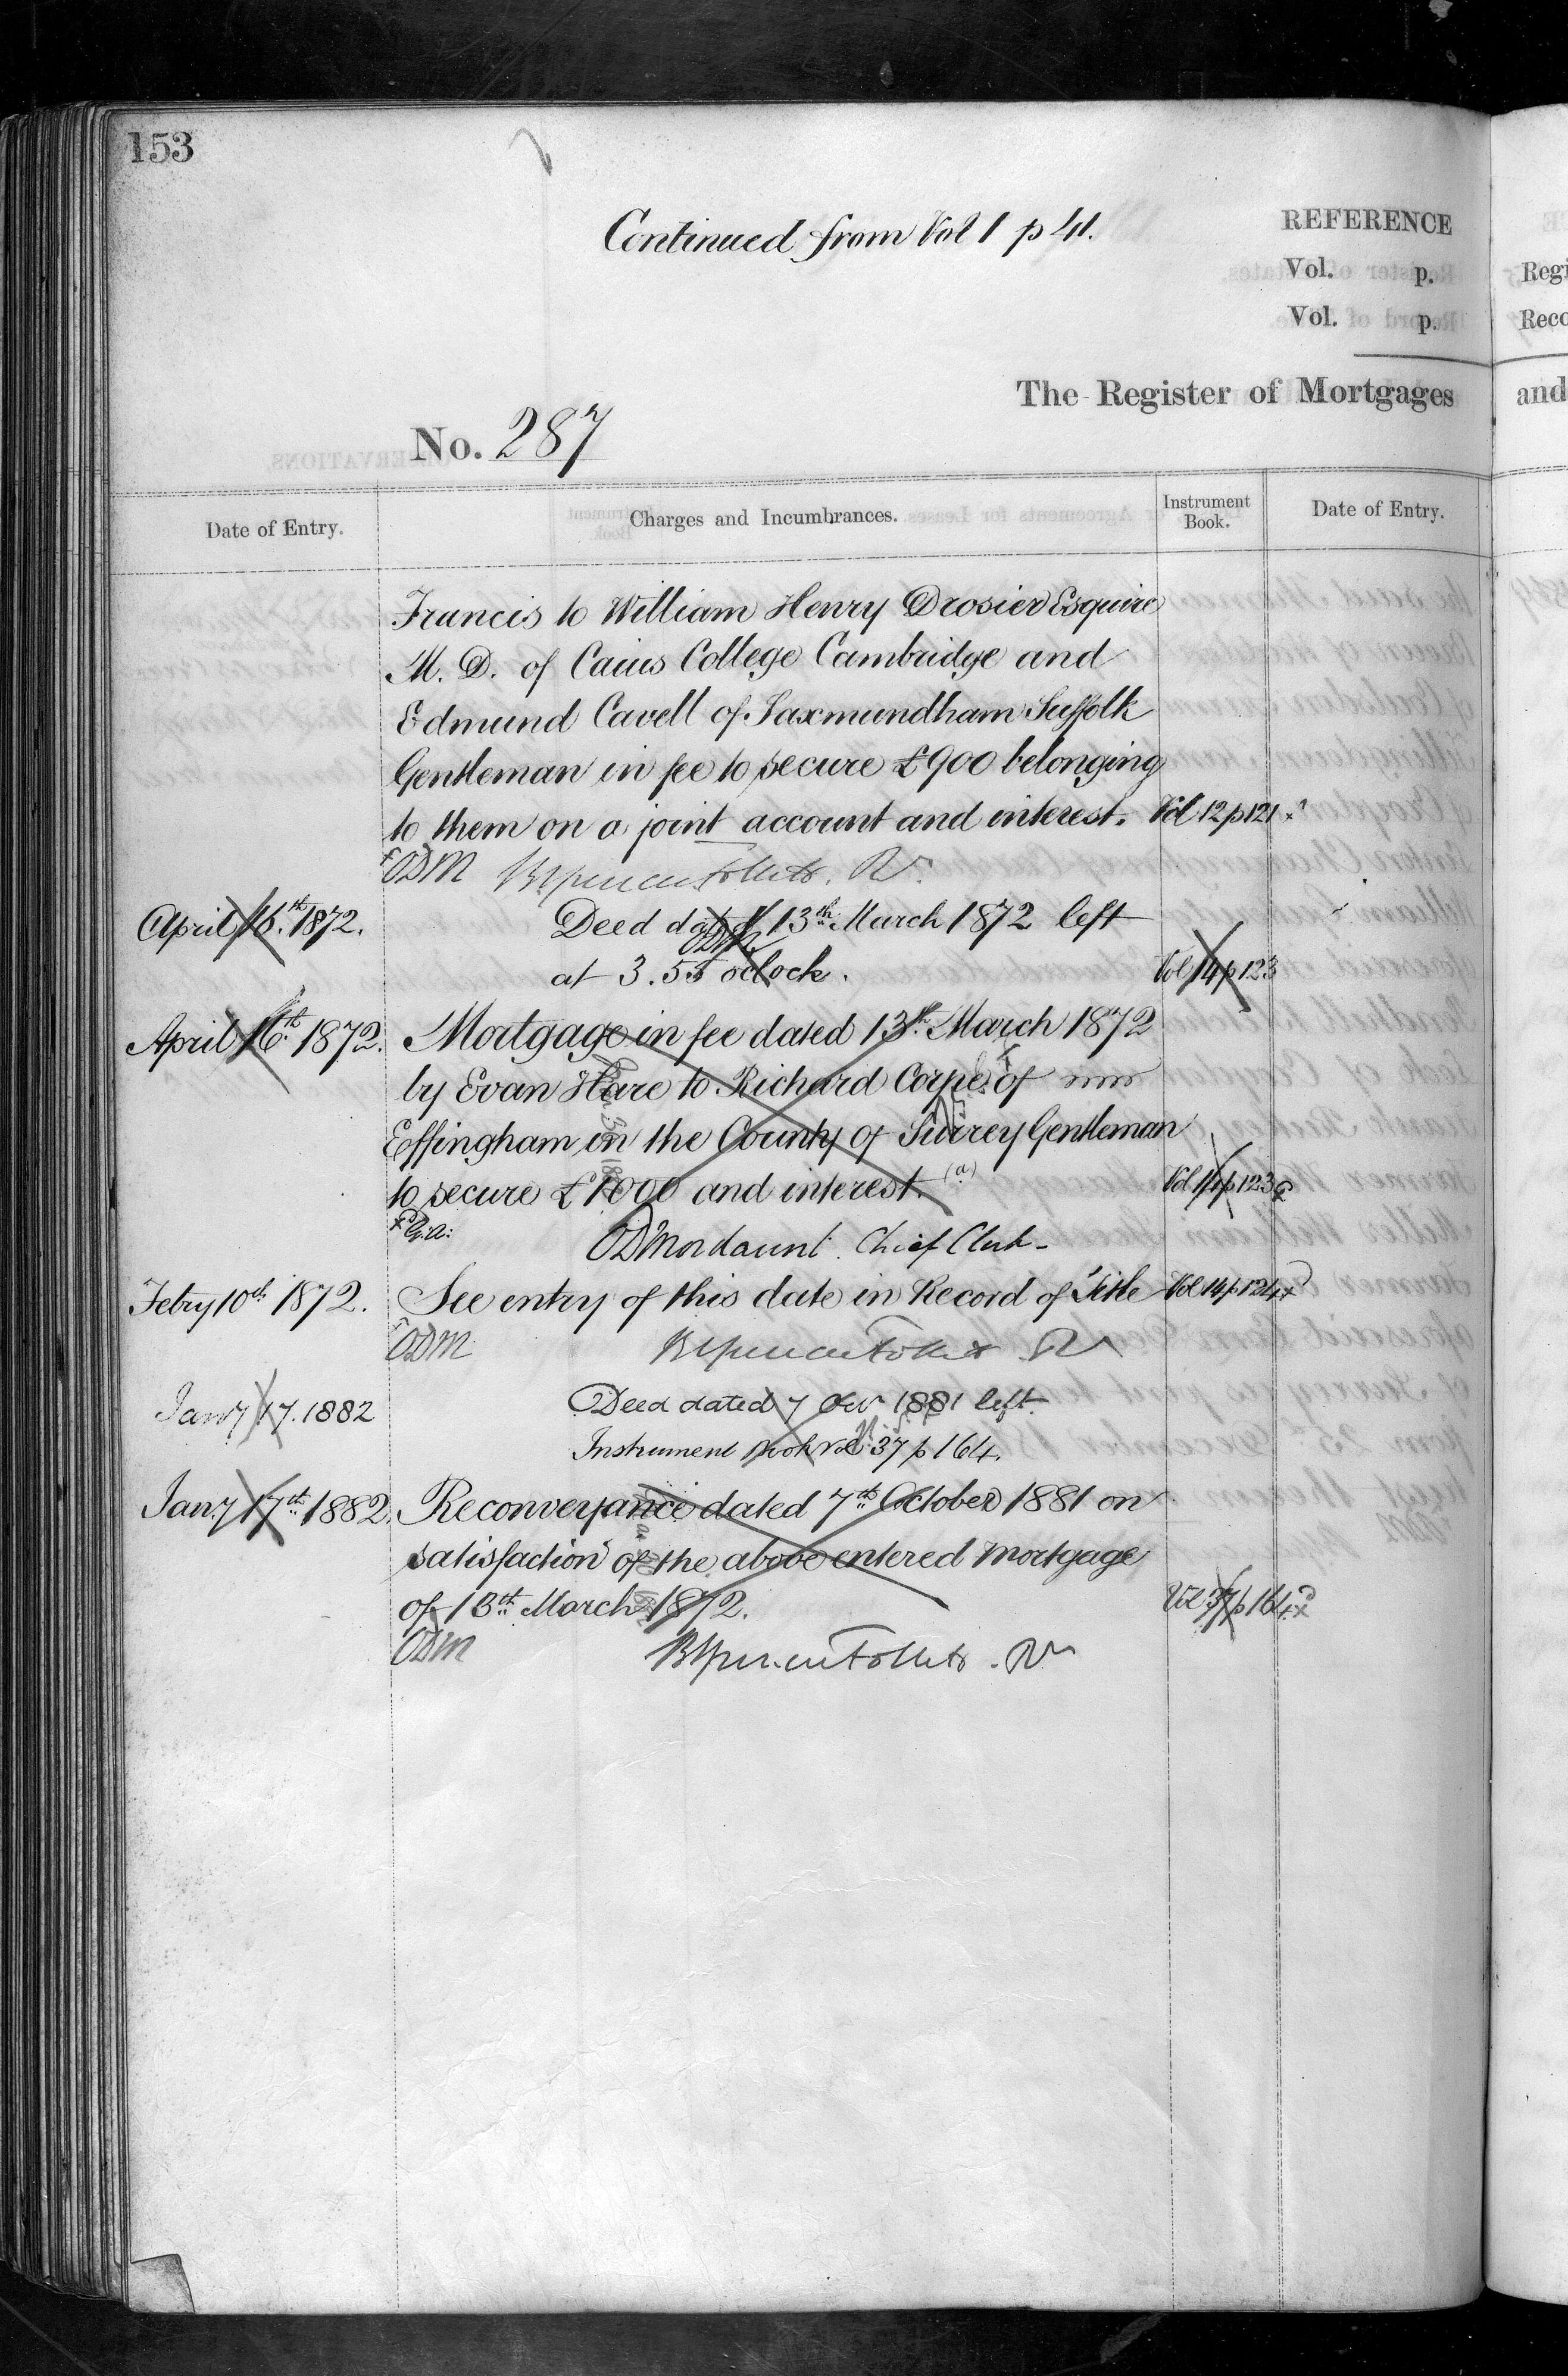 153
Continued from Vol 1 p 41.
REFERENCE
Vol. p.
Vol. p.
The Register of Mortgages
No. 287
Date of Entry.
Charges and Incumbrances.
Instrument Book.
Date of Entry.
Francis to William Henry Drosier Esquire
M. D. of Caius College Cambridge and
Edmund Cavell of Saxmundham Suffolk
Gentleman in fee to secure £900 belonging
to them on a joint account and interest. Vol 12 p 121
ODM
April 16th 1872. Deed dated 13th March 1872 left
ODM
at 3.55 oclock. Vol 14 p 123
April 16th 1872. Mortgage in fee dated 13th March 1872
by Evan Hare to Richard Corpe of
Effingham in the County of Surrey Gentleman
to secure £1000 and interest. (a) Vol 14 p 123
ODMordaunt. Chief Clerk
Febry 10th 1872. See entry of this date in Record of Title Vol 14 p 124
ODM
Jany 17. 1882 Deed dated 7 Oct 1881 left
Instrument book vol 37 p 164.
Jany 17th 1882 Reconveyance dated 7th October 1881 on
satisfaction of the above entered Mortgage
of 13th March 1872. Vol 37 p 164
ODM
Regi
Reco
and